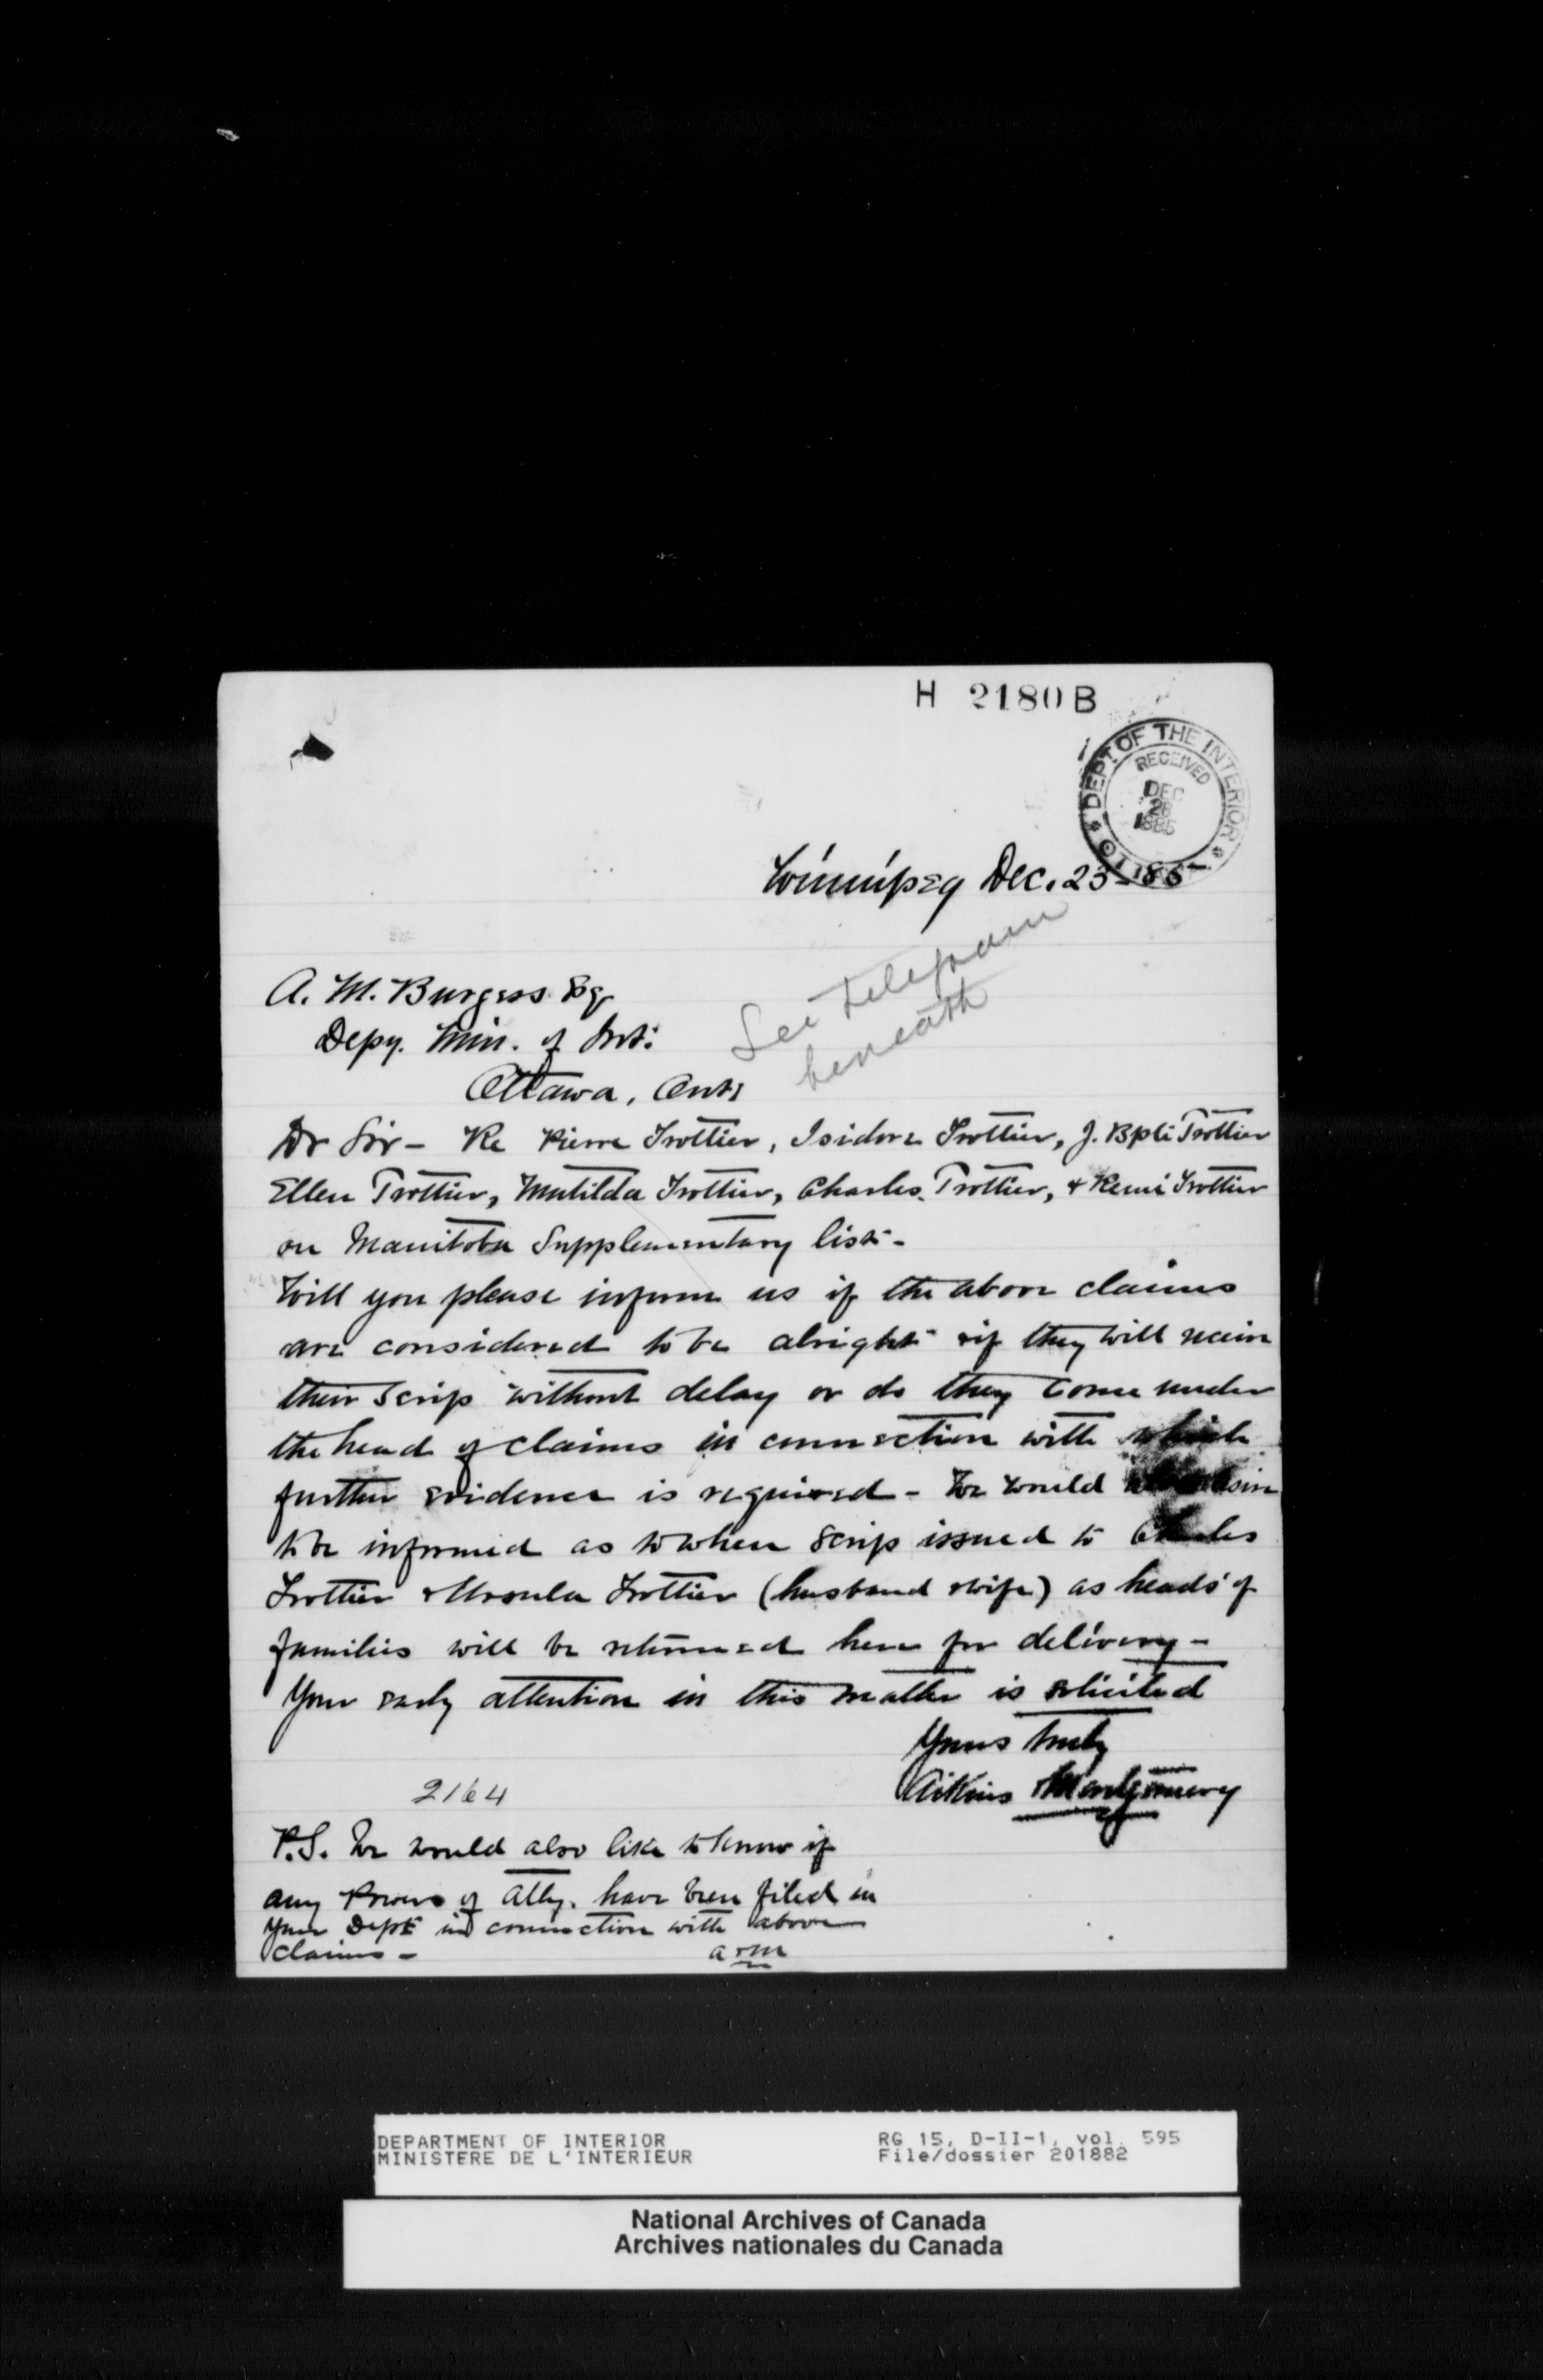 H 2180 B
DEPT OF THE INTERIOR
RECEIVED
DEC
28
1885
Winnipeg Dec. 23-85-
See telegram
beneath
A. M. Burgess Esq
Depy. Min. of Int:
Ottawa, Ont:
Dr Sir - Re Pierre Trottier, Isidore Trottier, J. Bpte Trottier
Ellen Trottier, Matilda Trottier, Charles Trottier, & Remi Trottier
on Manitoba Supplementary list -
Will you please inform us if the above claims
are considered to be alright & if they will receive
their scrip without delay or do they come under
the head of claims in connection with which
further evidence is required - We would
to be informed as to when scrip issued to Charles
Trottier & Ursula Trottier (husband & wife) as heads of
families will be returned here for delivery -
Your early attention in this matter is solicited
Yours truly
Aikins & Montgomery
2164
P.S. We would also like to know if
any Powers of Atty. have been filed in
your Dept in connection with above
claims -
A & M
DEPARTMENT OF INTERIOR
MINISTERE DE L'INTERIEUR
RG 15, D-II-1, vol. 595
File/dossier 201882
National Archives of Canada
Archives nationales du Canada